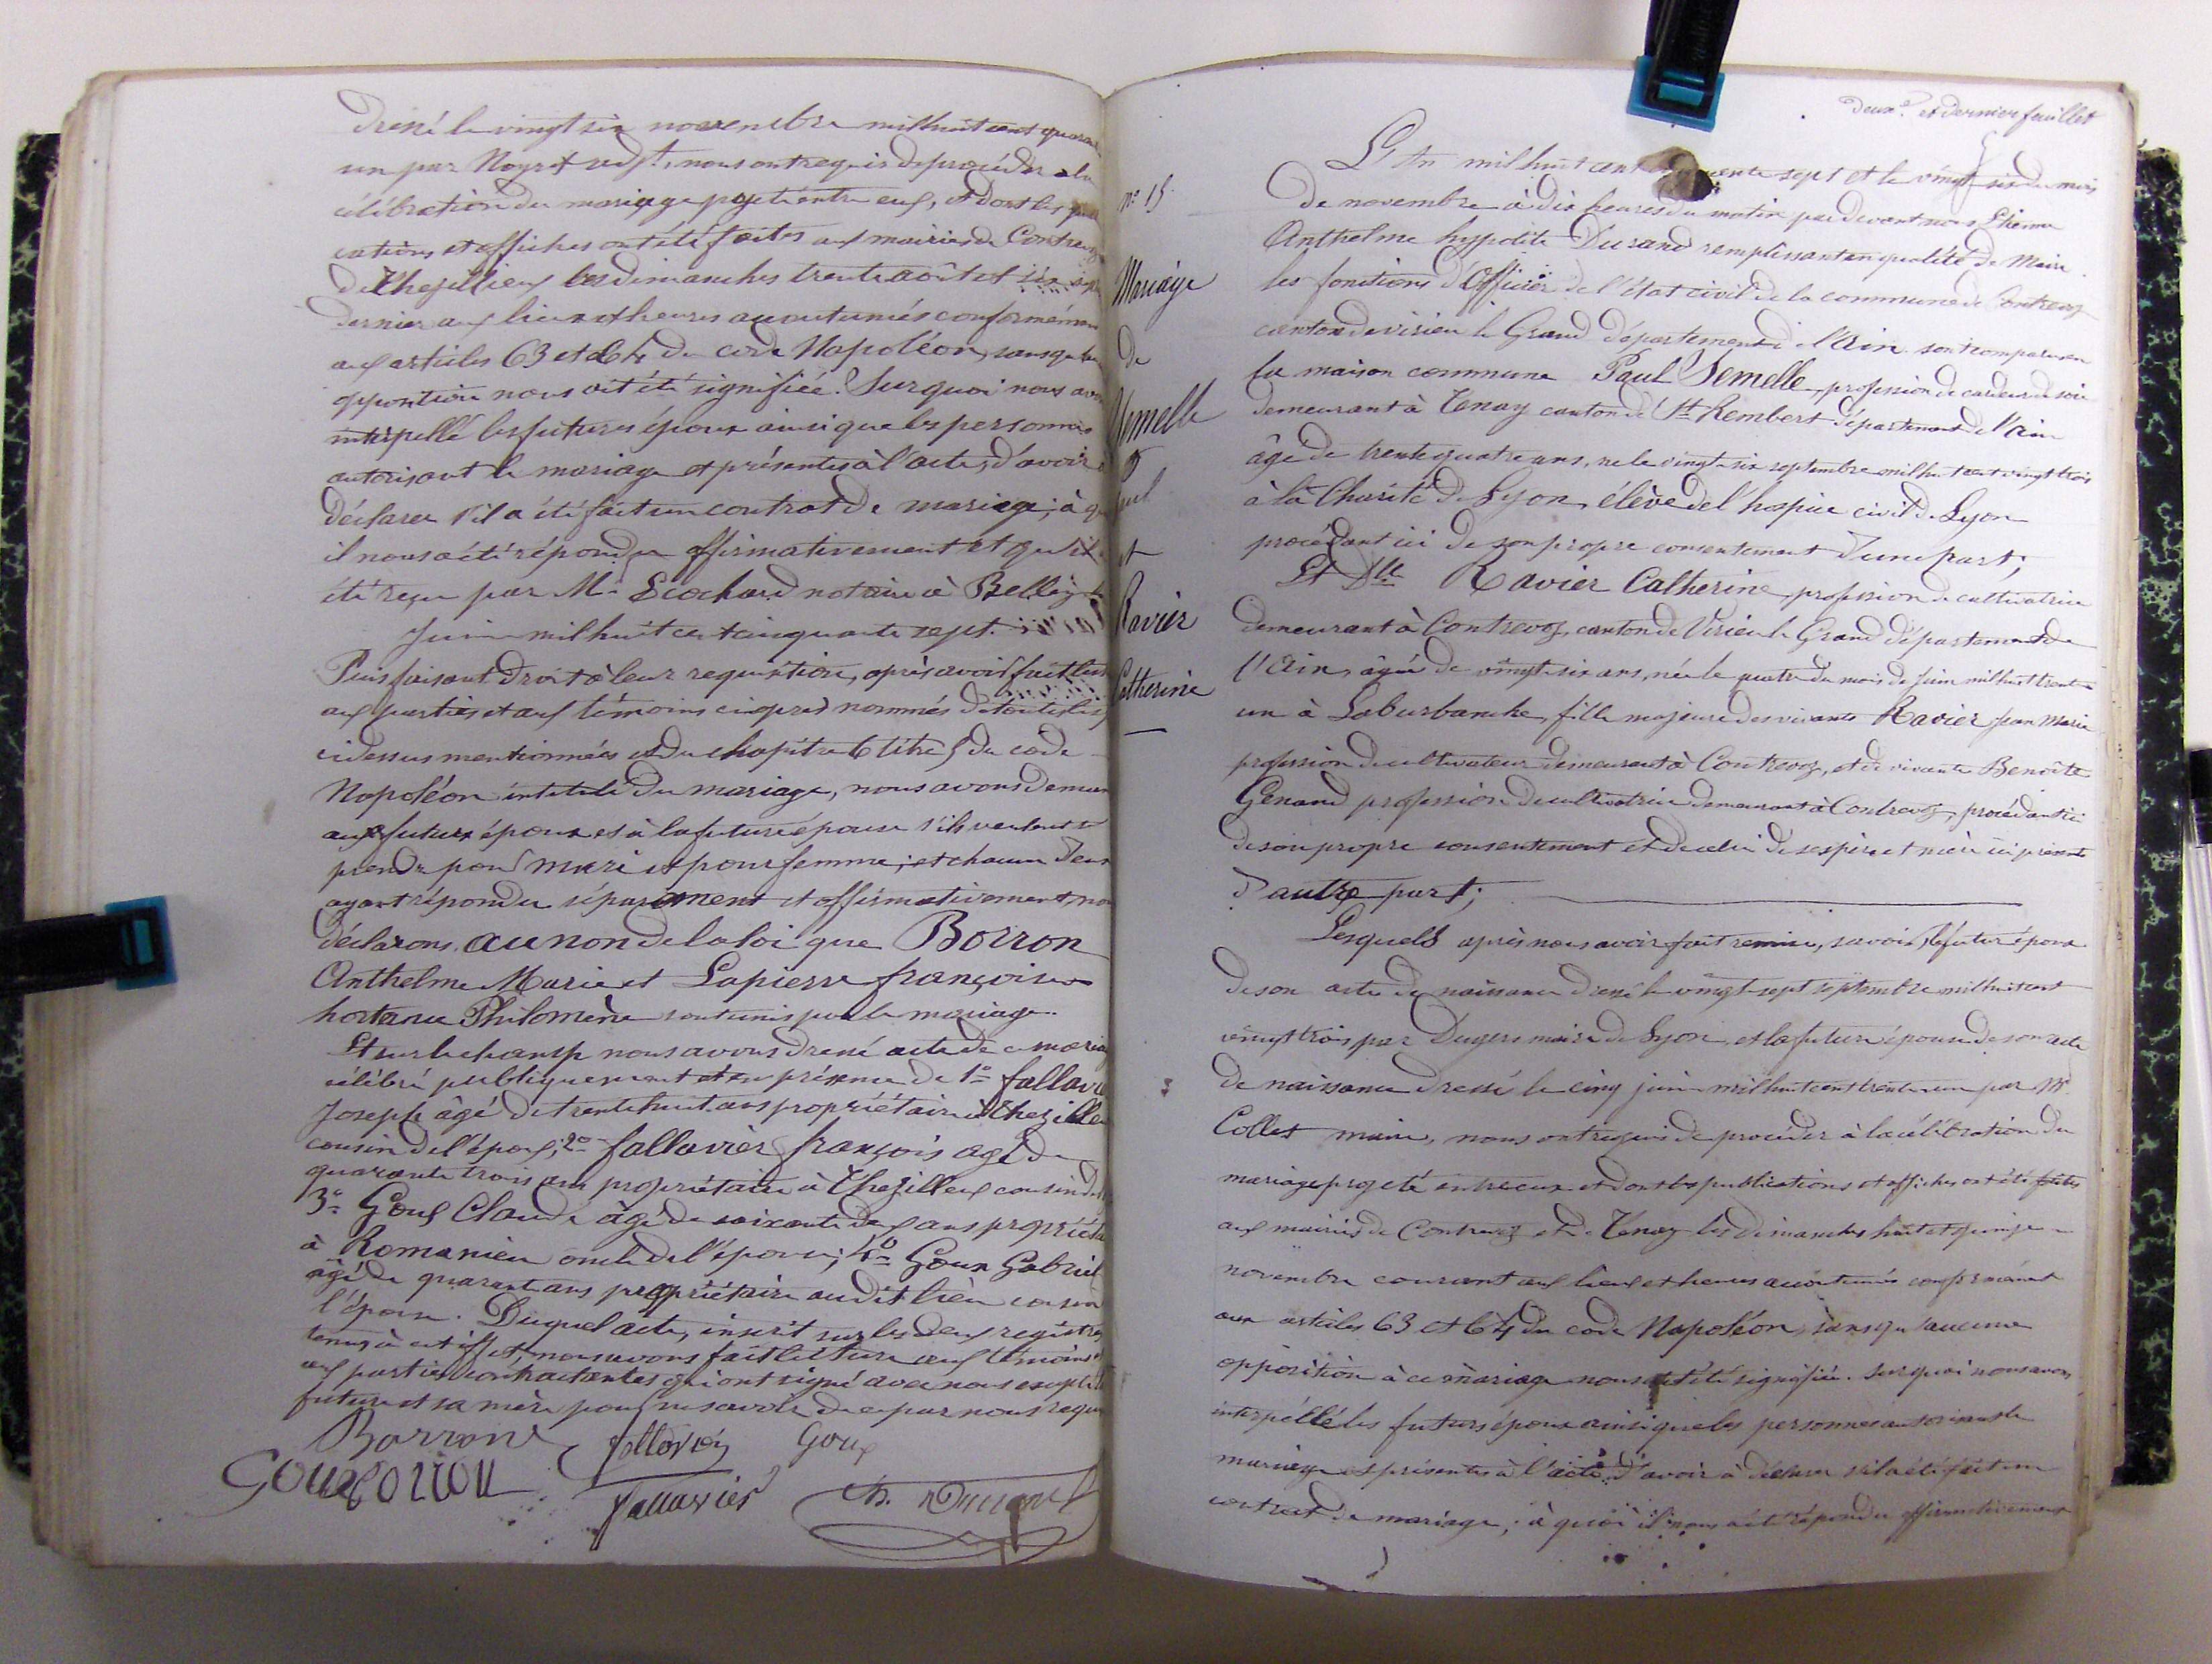 Dressé le vingt six novembre mil huit cent quarante
un par Noyret nous ont requis de procéder a la
célébration du mariage projeté entre eux, et dont les publi
cations et affiches ont été faites aux mairies de Contrevoz
de Chezillieu les dimanches trente août et six
dernier aux lieux et heures accoutumés conformément
aux articles 63 et 64 du code Napoléon, sans
opposition nous ait été signifiée. Sur quoi nous avons
interpellé les futures époux ainsi que les personnes
autorisant le mariage et présentes à l'acte, d'avoir à
déclarer s'il a été fait un contrat de mariage; à quoi
il nous a été répondu affirmativement et qu'il a
été reçu par Me Ecochard notaire à Belley le
juin mil huit cent cinquante sept.
Puis faisant droit à leur requisition, après avoir fait lecture
aux parties et aux témoins ci après nommés de toutes les
ci dessus mentionnées et du chapitre 6 titre 5 du code
Napoléon intitulé du mariage, nous avons demandé
aux futur époux et à la future épouse s'ils veulent se
prendre pour mari et pour femme; et chacun d'eux
ayant répondu séparément et affirmativement, nous
déclarons au nom de la loi que Borron
Anthelme Marie et Lapierre françoise
hortance Philomène sont unis par le mariage.
Et sur le champ nous avons dressé acte de ce mariage
célébré publiquement et en présence de 1° fallavier
Joseph âgé de trente huit ans propriétaire à Chezillieu
cousin de l'époux; 2° fallavier françois agé de
quarante trois ans propriétaire à Chezillieux cousin de
3° Goux Claude âgé de soixante deux ans propriétaire
à Romanieu oncle de l'épouse; 4° Goux Gabriel
âgé de quarante ans propriétaire audit lieu cousin
l'épouse. Duquel acte, inscrit sur les deux registres
tenus à cet effet, nous avons fait lecture aux témoins et
aux parties contractantes qui ont signé avec nous excepté la
future et sa mère pour ne savoir de ce par nous requis
Borron fallavier Goux
Goux Borron fallavier h. Durand
Deux.e et dernier feuillet
n° 15
Mariage
de
Semelle
Paul
et
Ravier
Catherine
L'An mil huit cent cinquante sept et le vingt six du mois
de novembre à dix heures du matin par devant nous Etienne
Anthelme hyppolite Durand remplissant en qualité de Maire
les fonctions d'Officier de l'état civil de la commune de Contrevoz
canton de virieu le Grand département de l'Ain sont comparus en
la maison commune Paul Semelle profession de cardeur de soie
demeurant à Tenay canton de St Rembert département de l'Ain
âgé de trente quatre ans, né le vingt six septembre mil huit cent vingt trois
à la Charité de Lyon, élève de l'hospice civil de Lyon
procédant ici de son propre consentement d'une part;
Et Dlle Ravier Catherine profession de cultivatrice
demeurant à Contrevoz, canton de Virieu le Grand département de
l'Ain, âgée de vingt six ans, née le quatre du mois de juin mil huit trente
un à Laburbanche, fille majeure des vivants Ravier jean Marie
profession de cultivateur demeurant à Contrevoz, et de vivante Benoîte
Genand profession de cultivatrice demeurant à Contrevoz, procédant ici
de son propre consentement et de celui de ses père et mère ici présents
d'autre part;
Lesquels après nous avoir fait remise, savoir, le futur époux
de son acte de naissance dressé le vingt sept septembre mil huit cent
vingt trois par Dugers maire de Lyon, et la future épouse de son acte
de naissance dressé le cinq juin mil huit cent trente un par Mr
Collet maire, nous ont requis de procéder à la célébration du
mariage projeté entre eux et dont les publications et affiches ont été faites
aux mairies de Contrevoz et de Tenay les dimanches huit et quinze
novembre courant aux lieux et heures accoutumés conformément
aux articles 63 et 64 du code Napoléon, sans qu'aucune
opposition à ce mariage nous ait été signifiée. Sur quoi nous avons
interpéllé les futurs époux ainsi que les personnes autorisant le
mariage et présentes à l'acte, d'avoir à déclarer s'il a été fait un
contrat de mariage; à quoi il nous a été répondu affirmativement